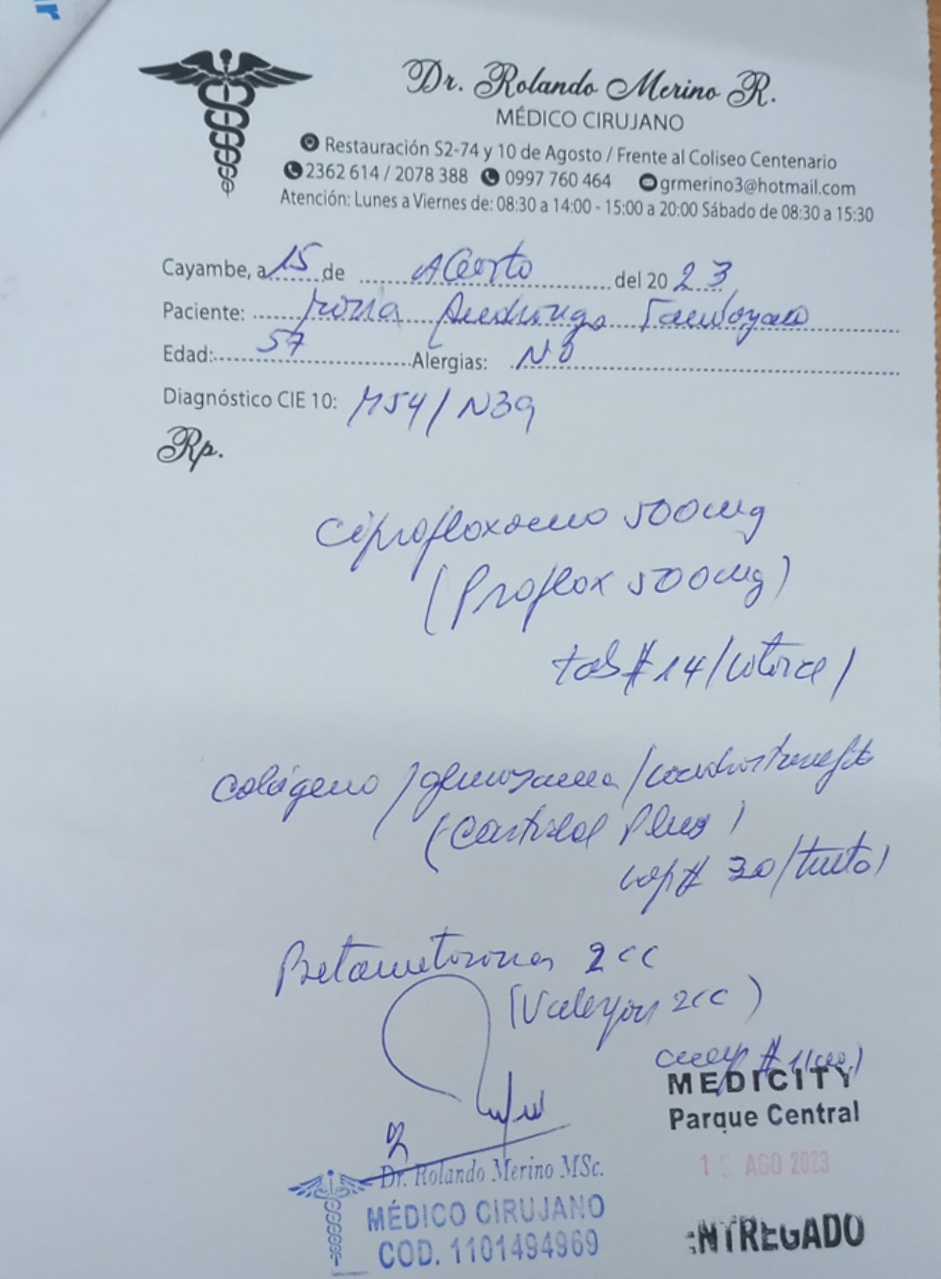 Dr. Rolando Merino R.
MÉDICO CIRUJANO
Restauración S2-74 y 10 de Agosto / Frente al Coliseo Centenario
2362 614 / 2078 388 0997 760 464 grmerino3@hotmail.com
Atención: Lunes a Viernes de: 08:30 a 14:00 - 15:00 a 20:00 Sábado de 08:30 a 15:30
Cayambe, a 15 de Agosto del 2023
Paciente:
Edad: 57 Alergias: NO
Diagnóstico CIE 10: M54/N39
Rp.
Ciprofloxacino 500mg
(Proflox 500mg)
tab # 14/catorce/
Colágeno /glucosamina/
Plus)
cap # 30/treinta/
Betametasona 2cc
2cc)
# 1
MEDICITY
Parque Central
AGO 2023
Dr. Rolando Merino MSc.
MÉDICO CIRUJANO
COD. 1101494969
ENTREGADO